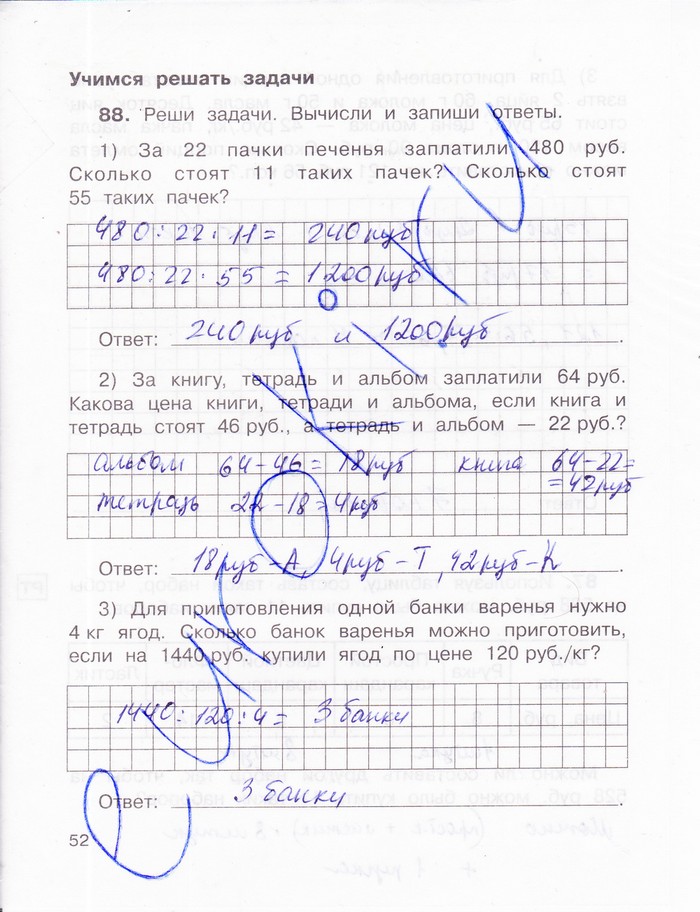 Учимся решать задачи
88. Реши задачи. Вычисли и запиши ответы.
1) За 22 пачки печенья заплатили 480 руб.
Сколько стоят 11 таких пачек? Сколько стоят
55 таких пачек?
480 : 22 · 11 = 240 руб
480 : 22 · 55 = 1200 руб
Ответ: 240 руб и 1200 руб.
2) За книгу, тетрадь и альбом заплатили 64 руб.
Какова цена книги, тетради и альбома, если книга и
тетрадь стоят 46 руб., а тетрадь и альбом — 22 руб.?
альбом 64 - 46 = 18 руб книга 64 - 22 =
= 42 руб
тетрадь 22 - 18 = 4 руб
Ответ: 18 руб - А, 4 руб - Т, 42 руб - К.
3) Для приготовления одной банки варенья нужно
4 кг ягод. Сколько банок варенья можно приготовить,
если на 1440 руб. купили ягод по цене 120 руб./кг?
1440 : 120 : 4 = 3 банки
Ответ: 3 банки.
52